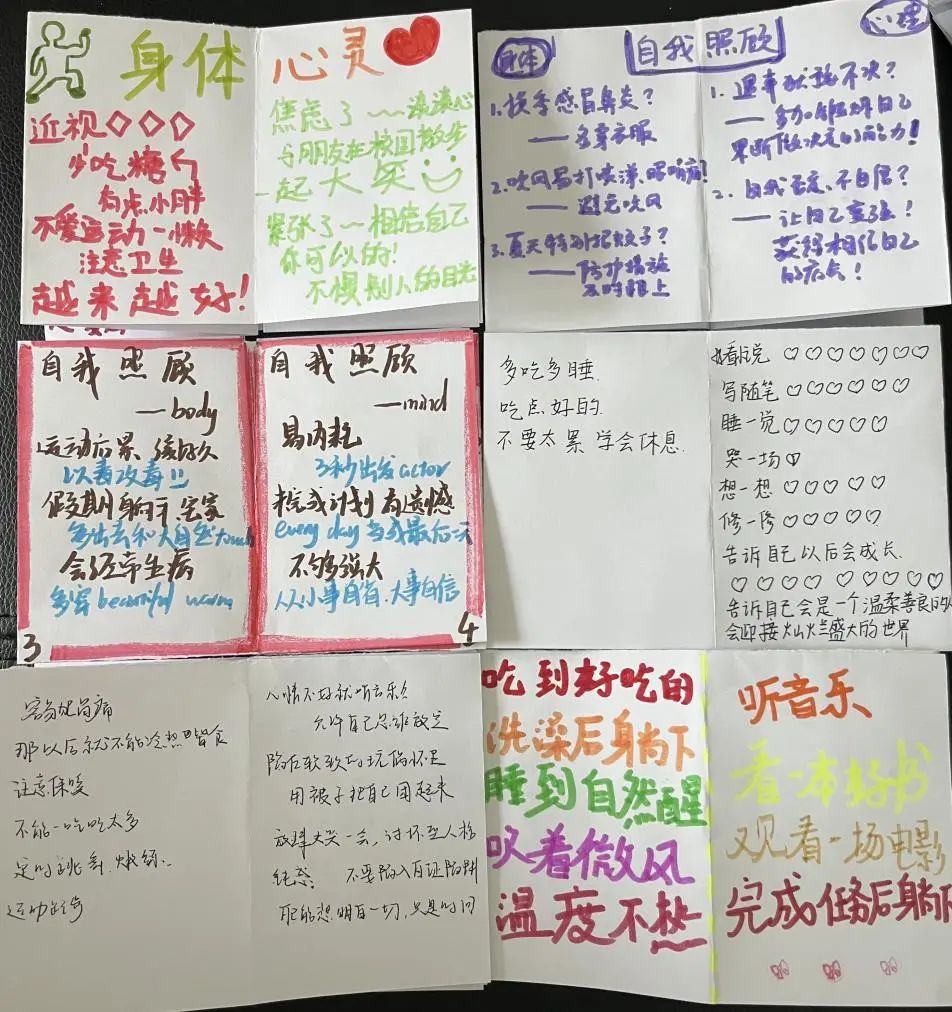 身体
近视
少吃糖
有点小胖
不爱运动—懒
注意卫生
越来越好!
心灵
焦虑了~~谈谈心
与朋友在校园散步
一起大笑
紧张了~相信自己
你可以的!
不惧别人的目光
自我照顾
身体
1.换季感冒鼻炎?
——多穿衣服
2.吹风易打喷嚏、
——避免吹风
3.夏天特别招蚊子?
——防护措施
及时跟上
心理
1.遇事犹豫不决?
——多加锻炼自己
果断做决定的能力!
2.自我否定、不自信?
——让自己变强!
获得相信自己
的底气!
自我照顾
——body
运动后累、缓好久
以毒攻毒
假期身汗宅家
多出去和大自然touch
会经常生病
多穿beautiful warm
3
自我照顾
——mind
易内耗
3秒出发actor
完成计划有遗憾
every day当成最后一天
不够强大
从小事自省、大事自信
4
多吃多睡.
吃点好的.
不要太累 学会休息.
看小说 ♡♡♡♡♡♡♡
写随笔 ♡♡♡♡♡♡
睡一觉 ♡♡♡♡♡
哭一场 ♡
想一想 ♡♡♡♡♡
修一修 ♡♡♡♡♡
告诉自己以后会成长.
♡♡♡♡ ♡♡♡♡♡
告诉自己会是一个温柔善良的人
会迎接灿烂盛大的世界
容易犯胃病
那以后就不能冷热皆食
注意保暖
不能一吃吃太多
定时跳舞、锻炼..
运动
心情不好就听音乐
允许自己思维放空
陷在软软的玩偶怀里
用被子把自己围起来
放肆大哭一会,讨坏型人格
不要陷入自证陷阱
都能想明白一切,只是时间
吃到好吃的
洗澡后身躺下
睡到自然醒
吹着微风
温度不热
听音乐
看一本好书
观看一场电影
完成任务后躺下